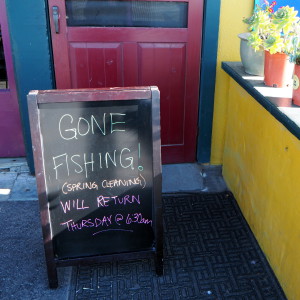 GONE
FISHING!
(SPRING CLEANING)
WILL RETURN
THURSDAY @ 6:30am